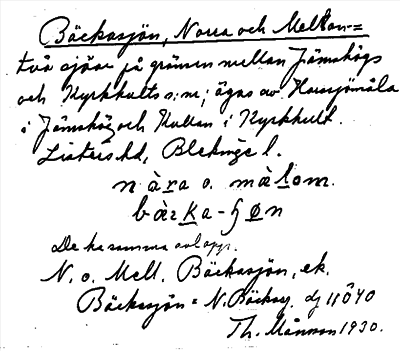 Bäckasjön, Norra och Mellan-=
två sjöar på gränsen mellan Jämshögs
och Kyrkhults s:nr; ägas av Harsjömåla
i Jämshög och Kullan i Kyrkhult.
Listers hd, Blekinge l.
nàra o. màlom.
bàrka-ʃøn
De ha samma avlopp.
N. o. Mell. Bäckasjön, ek.
Bäckasjön = N. Bäckasj. dj 11 Ö 40
Th. Månsson 1930.